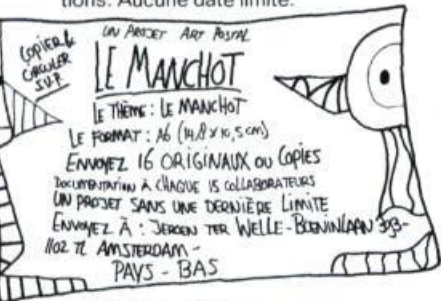 tions. Aucune date limite.
COPIER &
CIRCULER
S.V.P.
UN PROJET ART POSTAL
LE MANCHOT
LE THÈME : LE MANCHOT
LE FORMAT : A6 (14,8 x 10,5 cm)
ENVOYEZ 16 ORIGINAUX OU COPIES
DOCUMENTATION À CHAQUE 15 COLLABORATEURS
UN PROJET SANS UNE DERNIÈRE LIMITE
ENVOYEZ À : JEROEN TER WELLE - BOENINLAAN 393 -
1102 TL AMSTERDAM -
PAYS - BAS